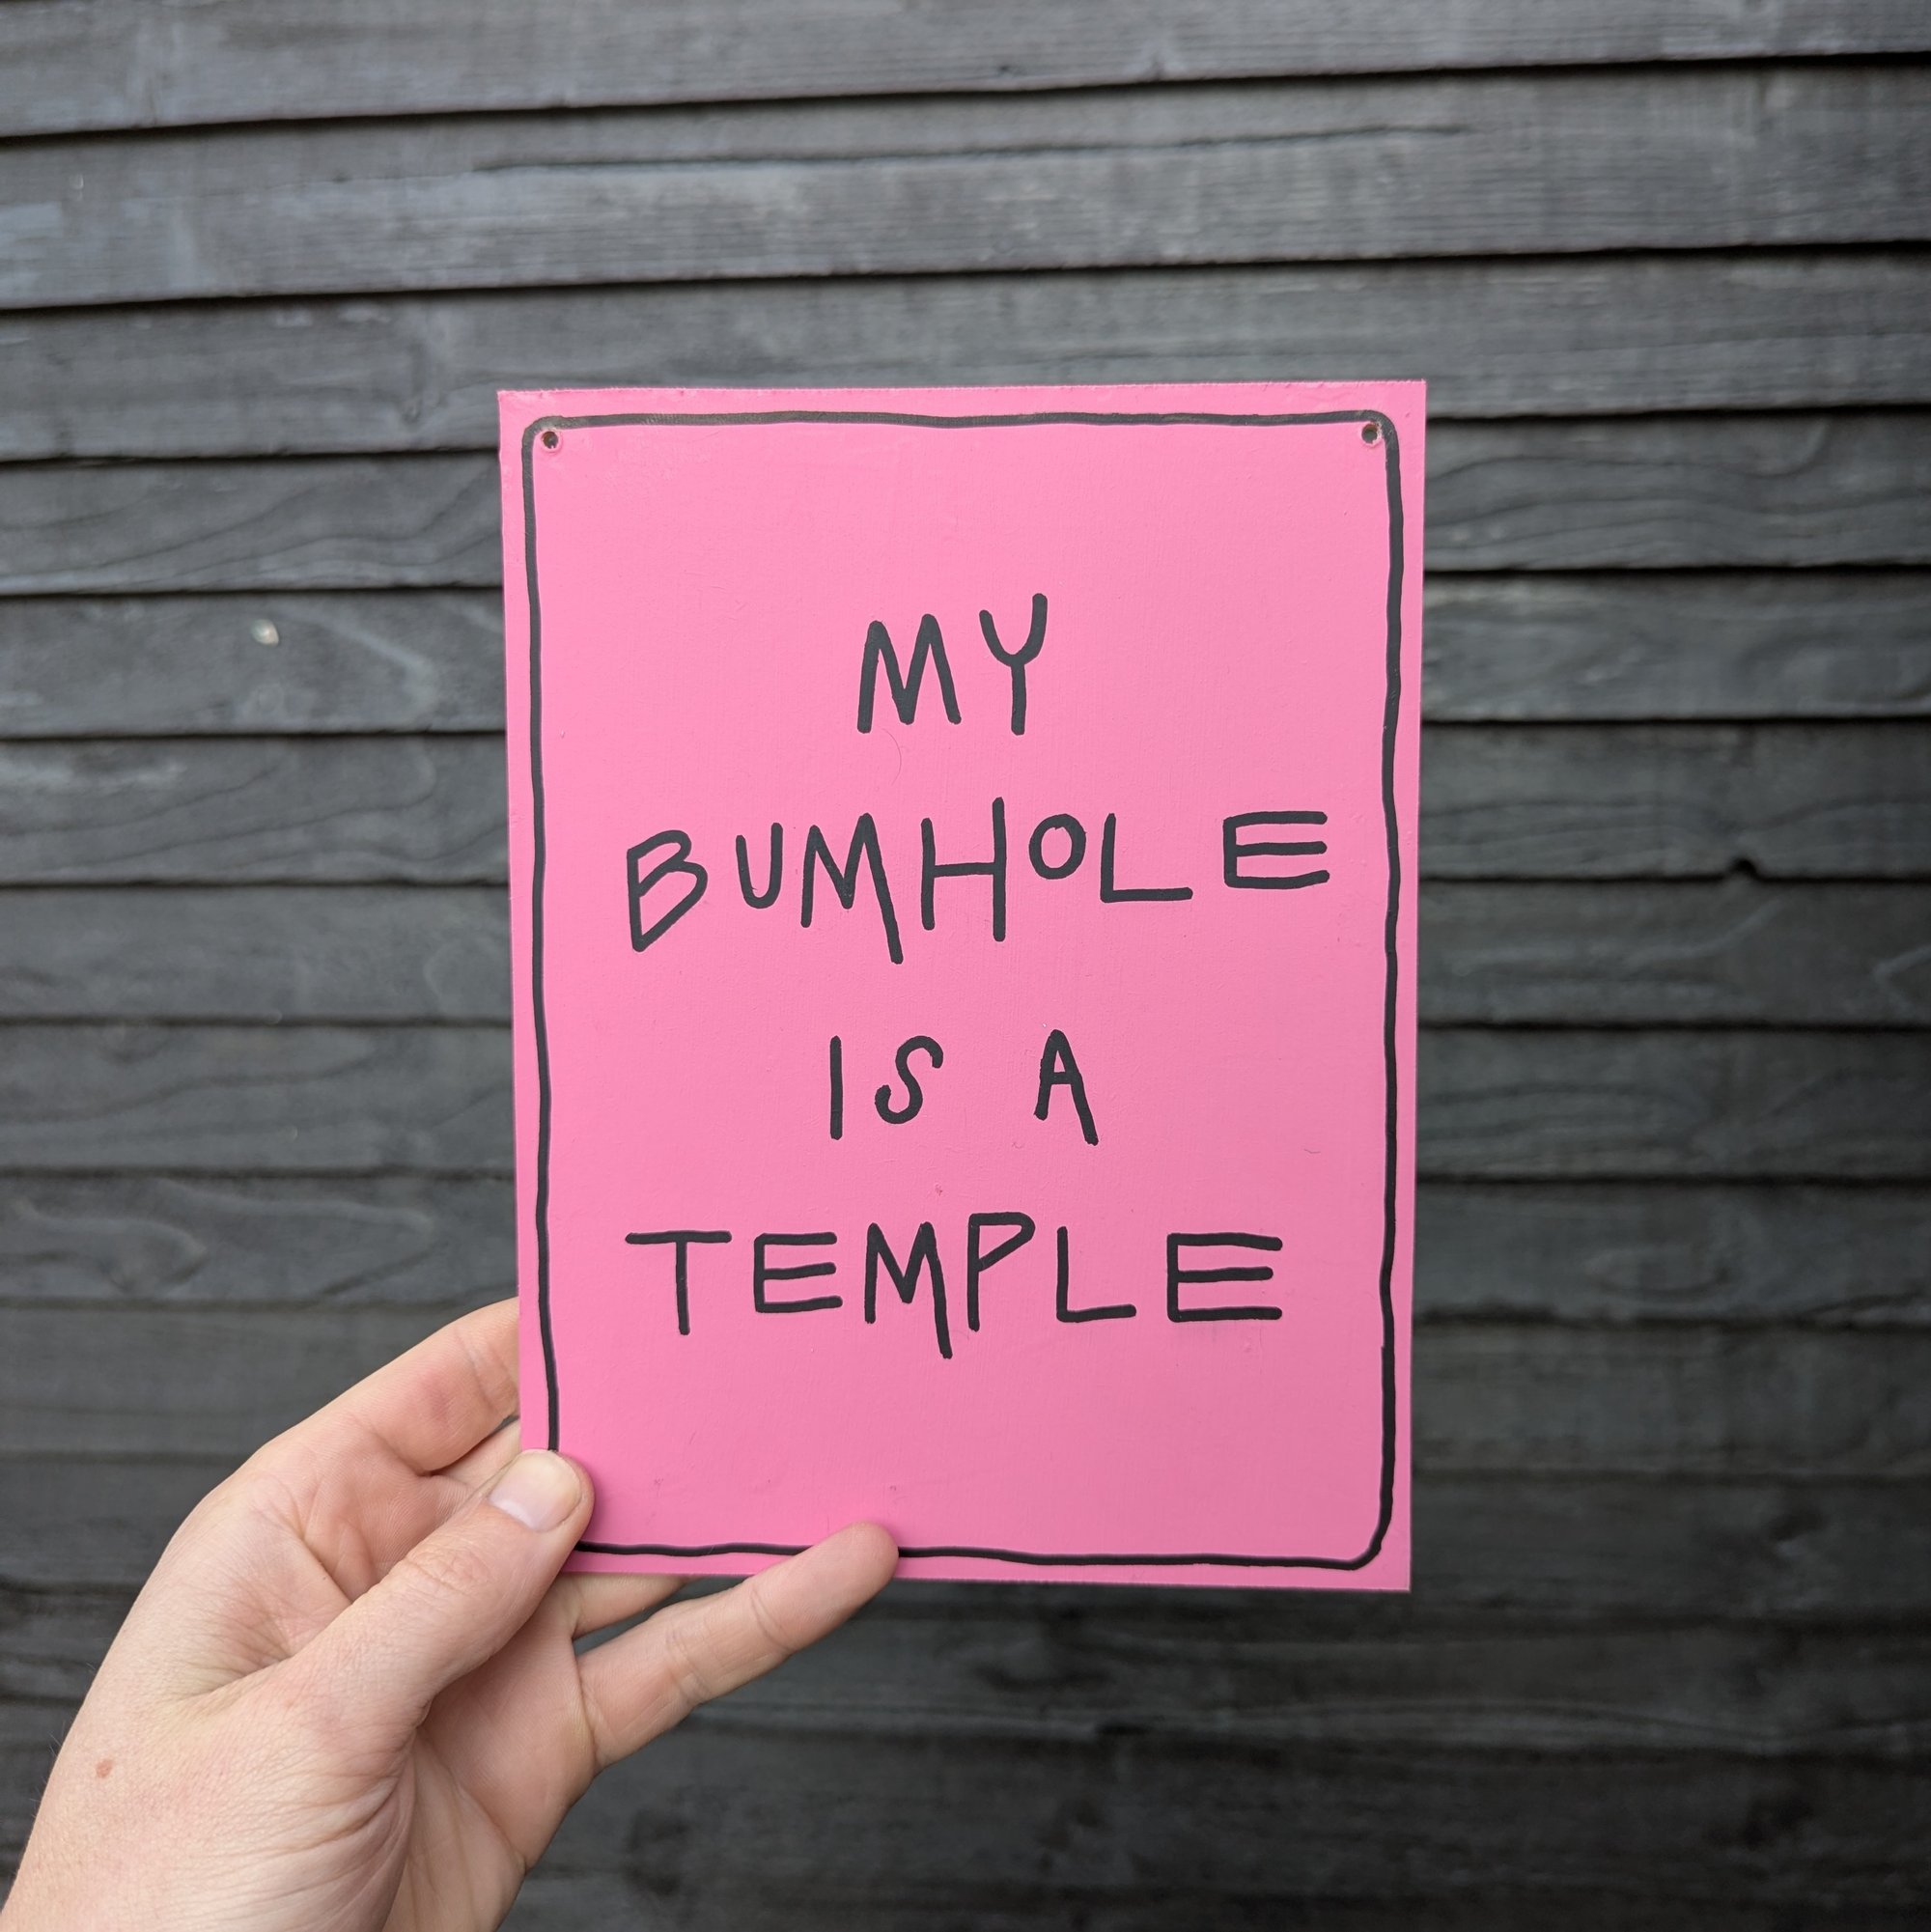 MY
BUMHOLE
IS A
TEMPLE